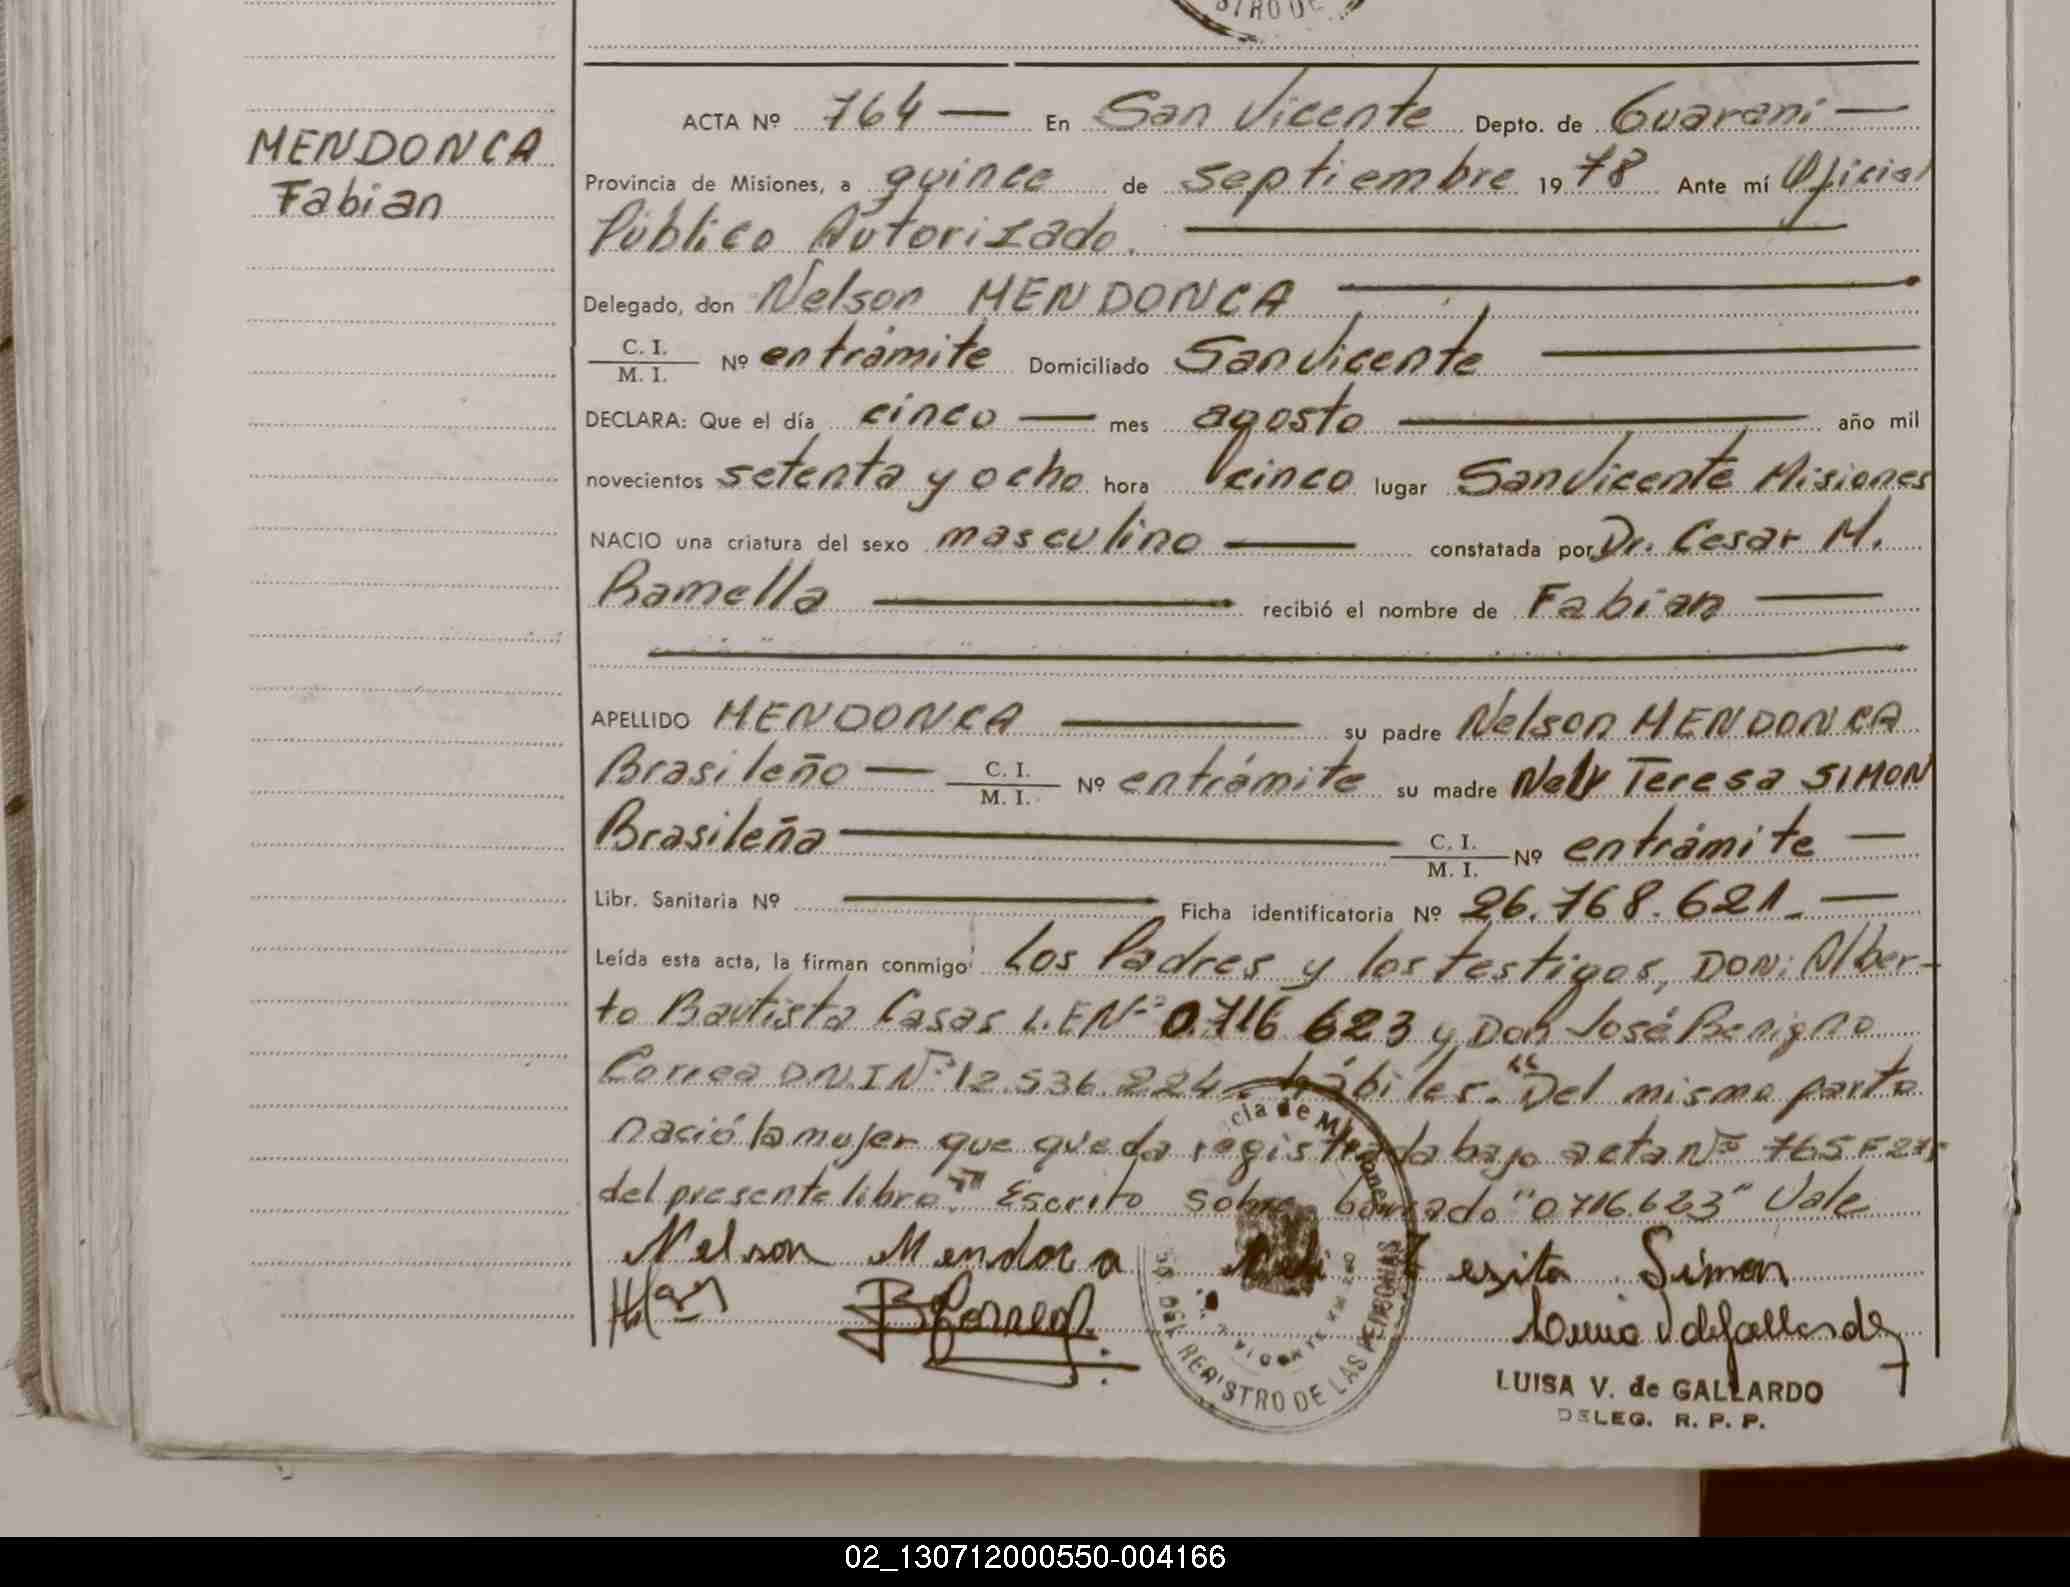 STRO DE
ACTA Nº 764 — En San Vicente Depto. de Guaraní —
MENDONCA
Fabian
Provincia de Misiones, a quince de septiembre 1978 Ante mí Oficial
Público Autorizado.
Delegado, don Nelson MENDONCA
C. I.
M. I. Nº entrámite Domiciliado San Vicente
DECLARA: Que el día cinco — mes agosto año mil
novecientos setenta y ocho hora cinco lugar San Vicente Misiones
NACIO una criatura del sexo masculino constatada por Dr. Cesar M.
Ramella recibió el nombre de Fabian
APELLIDO MENDONCA su padre Nelson MENDONCA
Brasileño — C. I.
M. I. Nº entrámite su madre Nely Teresa SIMON
Brasileña C. I.
M. I. Nº entrámite —
Libr. Sanitaria Nº Ficha identificatoria Nº 26.768.621. —
Leída esta acta, la firman conmigo Los Padres y los testigos, DON: Alber-
to Bautista Casas L.E Nº 0.716 623 y Don José Benigno
Correa D.N.I Nº 12.536.224 — hábiles. "Del mismo parto
nació la mujer que queda registrada bajo acta Nº 765 F
del presente libro." Escrito sobre borrado "0716.623" Vale
Nelson Mendoca Simon
LUISA V. de GALLARDO
DELEG. R. P. P.
REGISTRO DE LAS PERSONAS
02_130712000550-004166